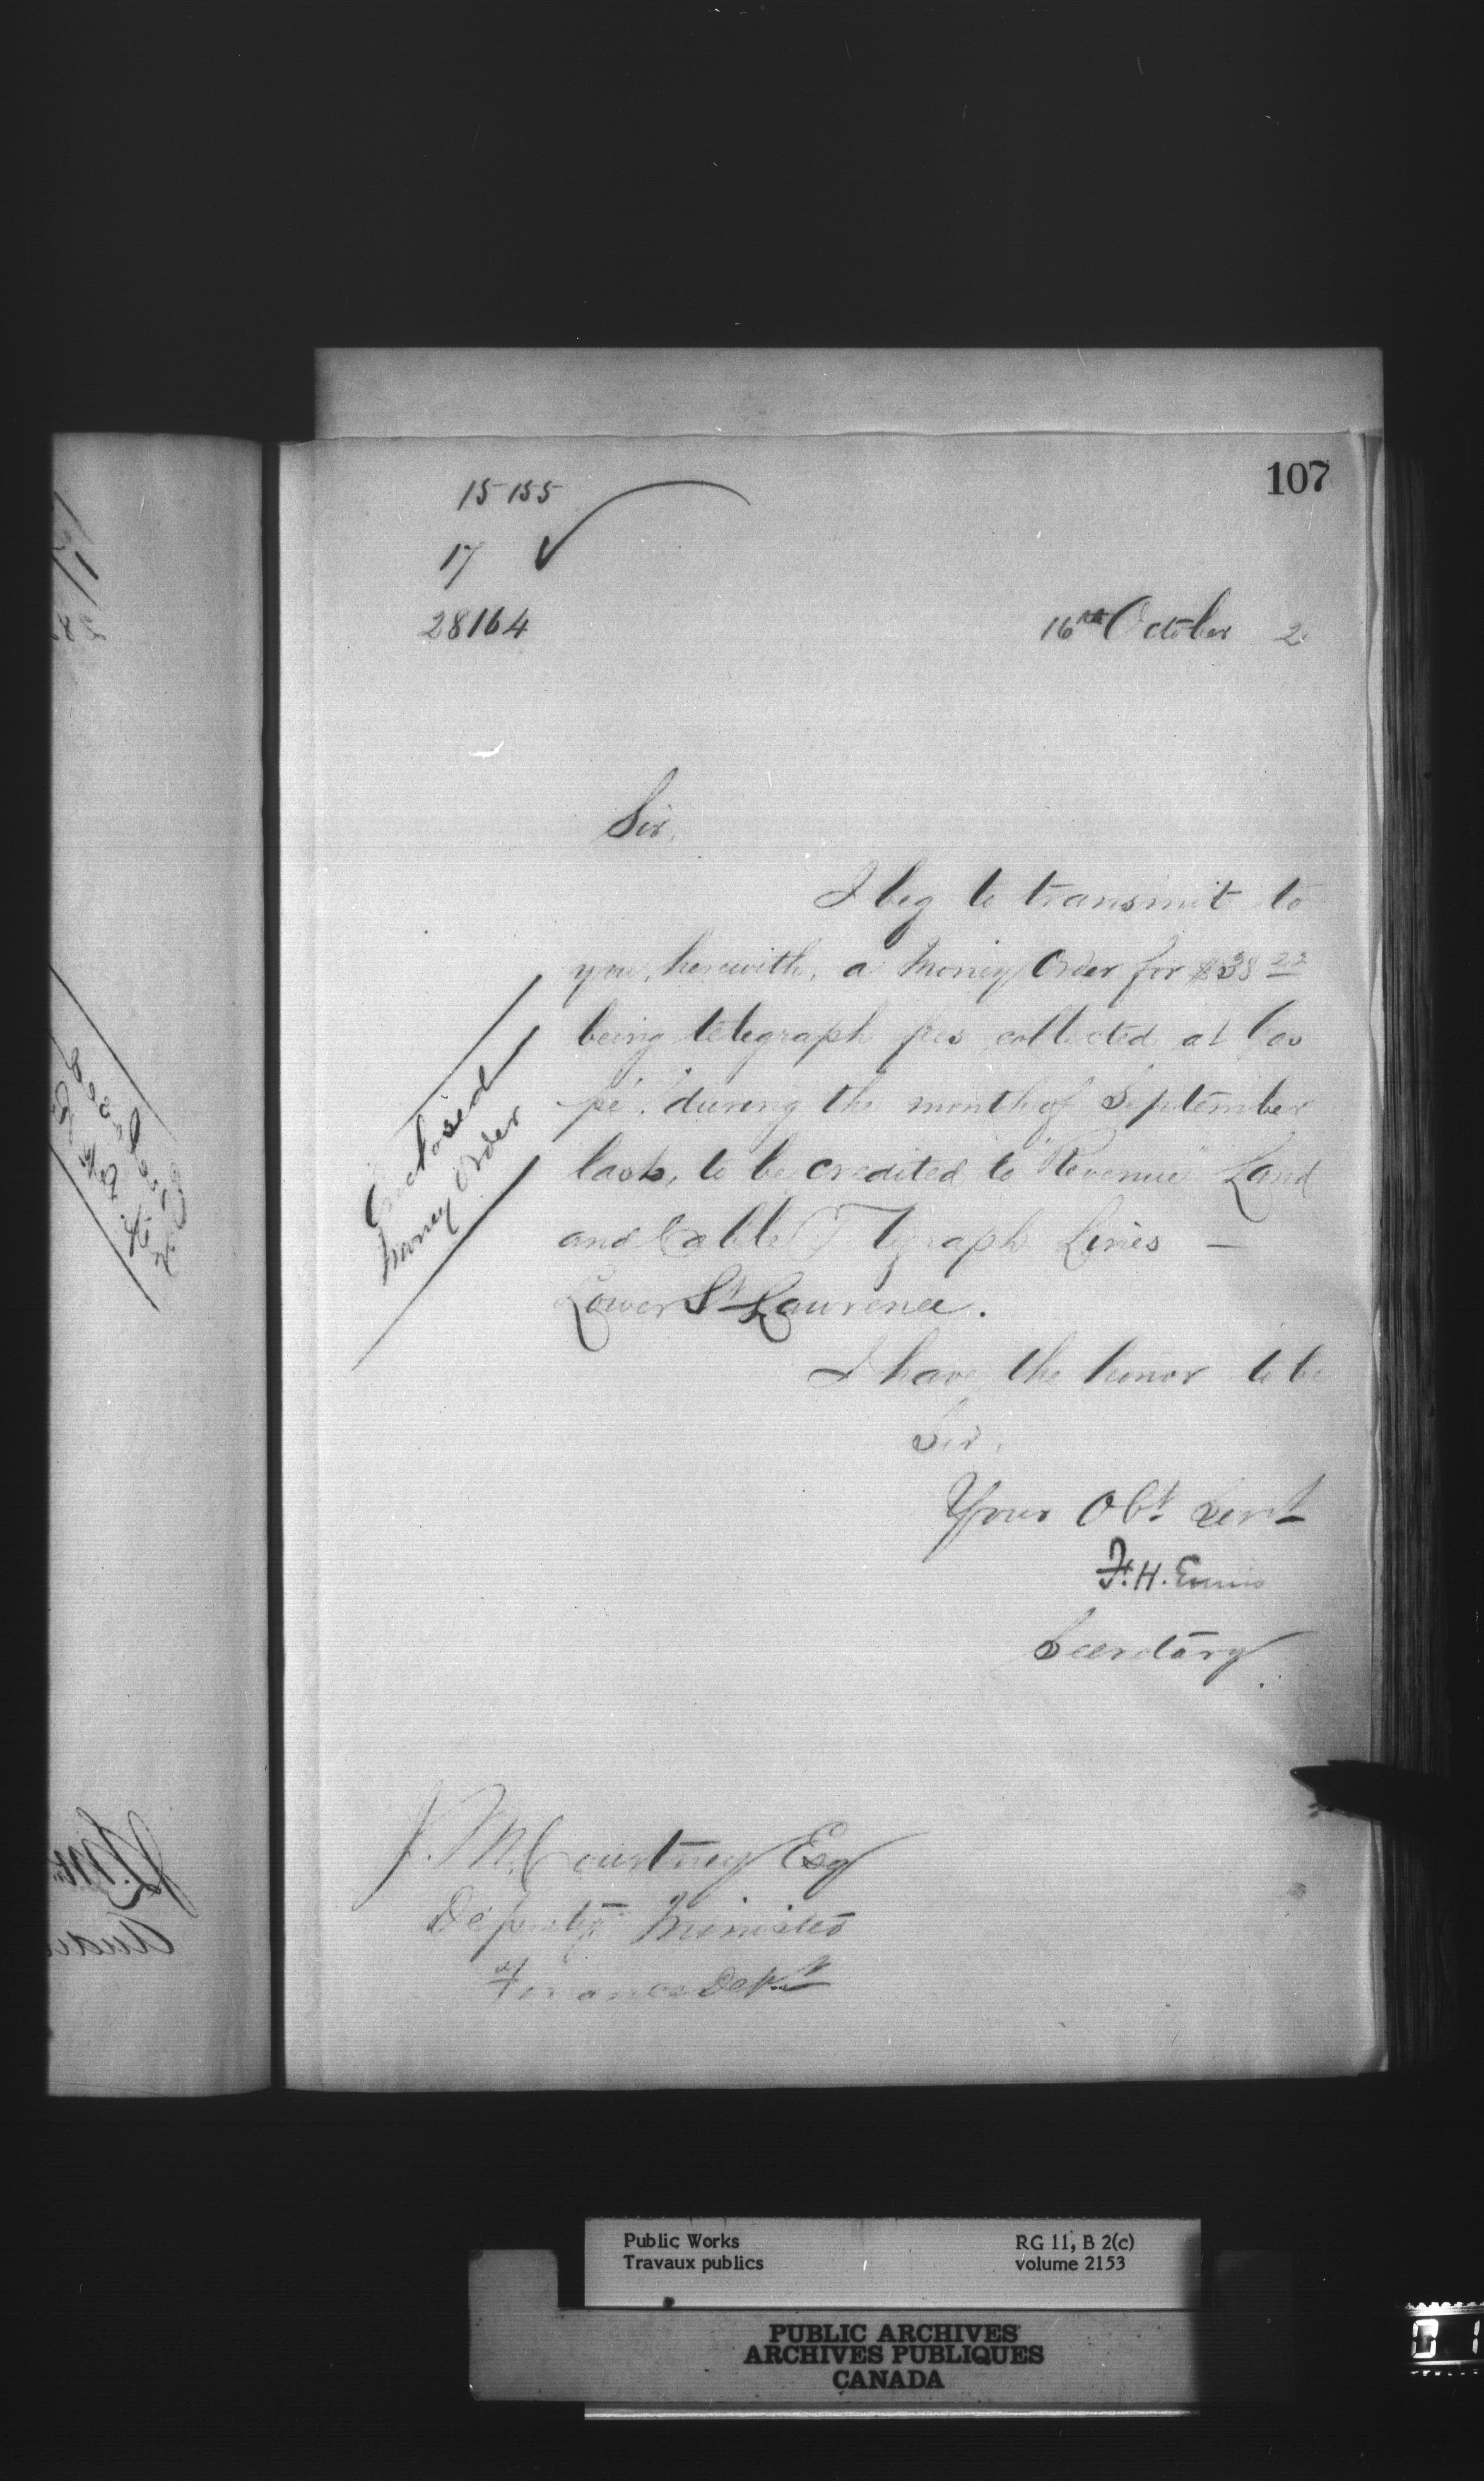 107
15155
17
28164
16th October 2
Sir,
I beg to transmit to
you, herewith, a Money Order for $38 22
being telegraph fees collected at Gas
pé, during the month of September
last, to be credited to "Revenue" Land
and Cable Telegraph Lines —
Lower St Lawrence.
Enclosed
Money Order
I have the honor to be
Sir,
Your Obt Servt
F. H. Ennis
Secretary
J. M. Courtney Esq
Deputy Minister
of
Finance Dept
Public Works
Travaux publics
RG 11, B 2(c)
volume 2153
PUBLIC ARCHIVES
ARCHIVES PUBLIQUES
CANADA
01